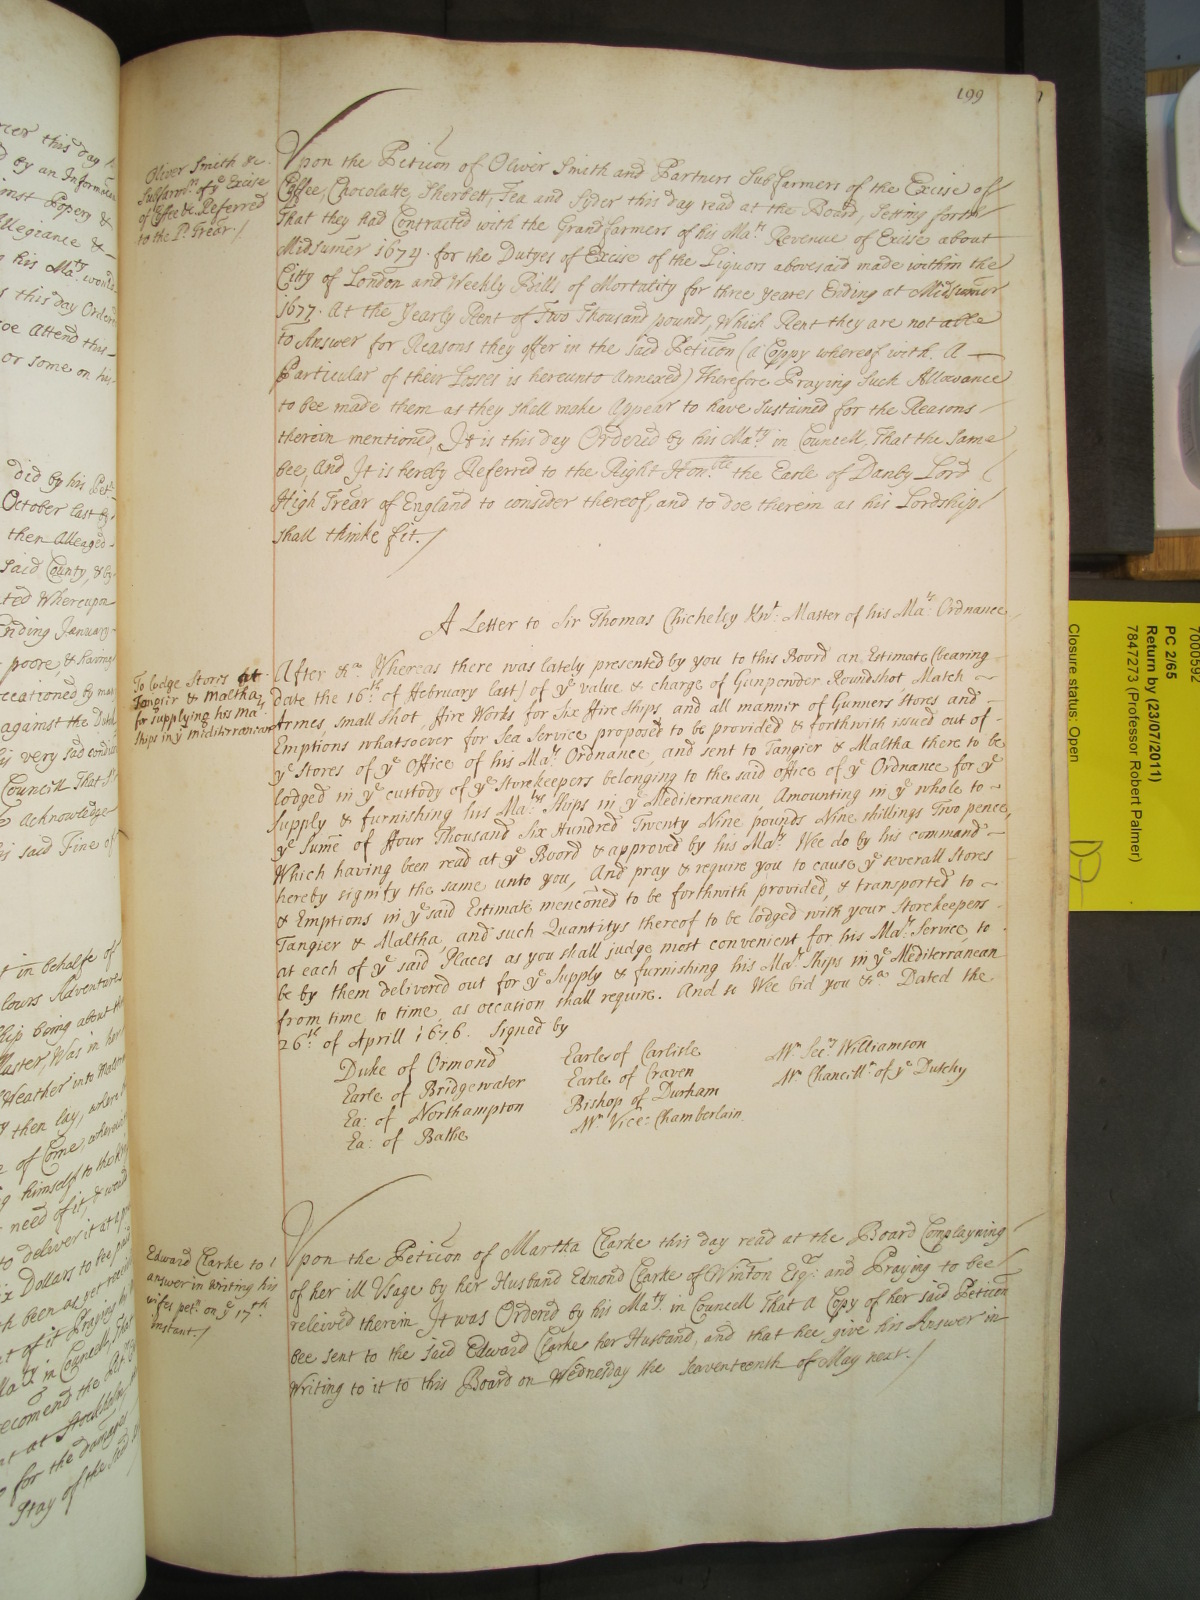 199
Oliver Smith &c.
Subfarmrs. of ye Excise
of Coffee &c. Referred
to the Ld. Trear./
Vpon the Peticon of Oliver Smith and Partners Subfarmers of the Excise of
Coffee, Chocolatte, Sherbett, Tea and Syder this day read at the Board, Setting forth
That they had Contracted with the Grandfarmers of his Maty. Revenue of Excise about
Midsumer 1674. for the Dutyes of Excise of the Liquors abovesaid made within the
Citty of London and Weekly Bills of Mortality for three yeares Ending at Midsumer
1677. At the Yearly Rent of Two Thousand pounds, Which Rent they are not able
to Answer for Reasons they offer in the said Peticon (a Coppy whereof with. A
Particular of their Losses is hereunto Annexed) Therefore Praying Such Allowance
to bee made them as they shall make Appear to have Sustained for the Reasons
therein mentioned, It is this day Ordered by his Maty. in Councell, That the same
bee, And It is hereby Referred to the Right Honble. the Earle of Danby Lord
High Trear of England to consider thereof, and to doe therein as his Lordship
shall thinke fit./
A Letter to Sir Thomas Chicheley Knt. Master of his Mats. Ordnance
To lodge Stores at
Tangier & Maltha
for supplying his Mats.
Ships in ye Mediterranean
After &a. Whereas there was lately presented by you to this Board an Estimate (bearing
date the 16th. of ffebruary last) of ye value & charge of Gunpowder Roundshot, Match
Armes, small shot, ffire Works for Six ffire Ships, and all manner of Gunners Stores and
Emptions whatsoever for Sea Service proposed to be provided & forthwith issued out of
ye Stores of ye Office of his Mats. Ordnance, and sent to Tangier & Maltha there to be
lodged in ye custody of ye Storekeepers belonging to the said office of ye Ordnance for ye
supply & furnishing his Mats. Ships in ye Mediterranean, Amounting in ye whole to
ye Sume of ffour Thousand Six Hundred Twenty Nine pounds Nine shillings Two pence,
Which having been read at ye Board & approved by his Maty. Wee do by his command
hereby signify the same unto you, And pray & require you to cause ye severall Stores
& Emptions in ye said Estimate menconed to be forthwith provided, & transported to
Tangier & Maltha, and such Quantitys thereof to be lodged with your Storekeepers
at each of ye said Places as you shall judge most convenient for his Mats. Service, to
be by them delivered out for ye Supply & furnishing his Mats. Ships in ye Mediterranean
from time to time, as occasion shall require. And so Wee bid you &a. Dated the
26th. of Aprill 1676. Signed by
Duke of Ormond
Earle of Bridgewater
Ea: of Northampton
Ea: of Bathe
Earle of Carlisle
Earle of Craven
Bishop of Durham
Mr. Vice: Chamberlain
Mr. Secry. Williamson
Mr. Chancillr. of ye Dutchy
Edward Clarke to
answer in writing his
wifes petn. on ye 17th.
instant./
Vpon the Peticon of Martha Clarke this day read at the Board Complayning
of her ill Usage by her Husband Edmond Clarke of Winton Esqr. and Praying to bee
releived therein It was Ordered by his Maty. in Councell That a Copy of her said Peticon
bee sent to the said Edward Clarke her Husband, and that hee give his Answer in
Writing to it to this Board on Wednesday the Seaventeenth of May next./
7000592
PC 2/65
Return by (23/07/2011)
7847273 (Professor Robert Palmer)
Closure status: Open
did by his
October last
then Alleaged
said County, &
Whereupon
January
poore & having
against the
very sad
Council That
Acknowledge
said Fine of
in behalfe of
being about
Master, Was in
Weather into
then lay, where
of Come,
himself to the
need of it, &
to deliver it
Dollars to bee
been as yet
of it Prayes
in Councell, That
recomend the
at Stockholm
for the damages
Stay of the said